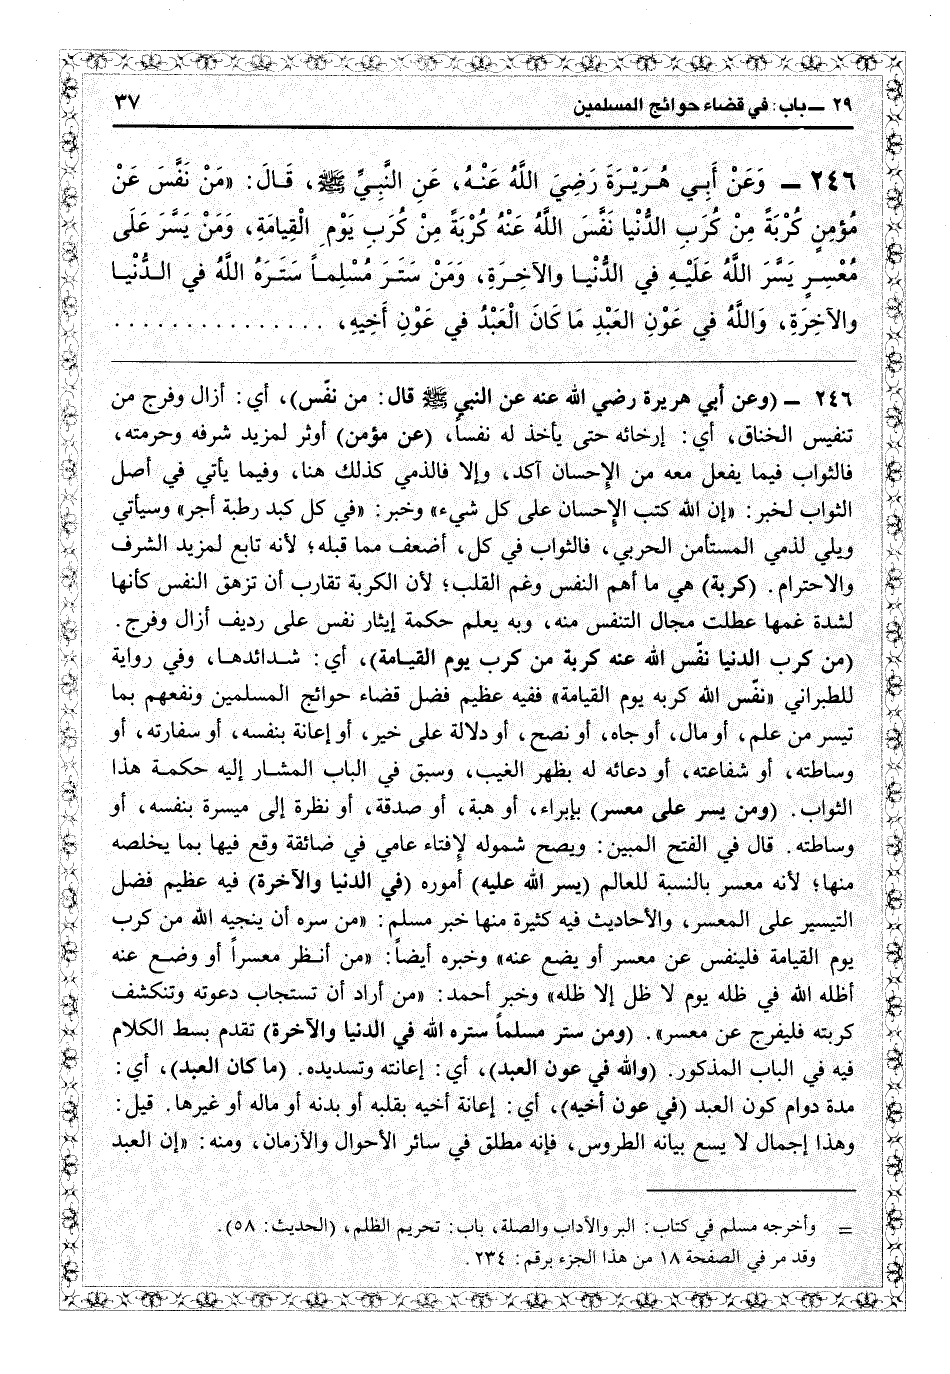 ٢٩ ــ باب: في قضاء حوائج المسلمين ٣٧
٢٤٦ ــ وَعَنْ أَبِي هُرَيْرَةَ رَضِيَ اللَّهُ عَنْهُ، عَنِ النَّبِيِّ ﷺ، قَالَ: «مَنْ نَفَّسَ عَنْ
مُؤمِنٍ كُرْبَةً مِنْ كُرَبِ الدُّنْيا نَفَّسَ اللَّهُ عَنْهُ كُرْبَةً مِنْ كُرَبِ يَوْمِ الْقِيامَةِ، وَمَنْ يَسَّرَ عَلَى
مُعْسِرٍ يَسَّرَ اللَّهُ عَلَيْهِ في الدُّنْيا والآخِرَةِ، وَمَنْ سَتَرَ مُسْلِماً سَتَرَهُ اللَّهُ في الدُّنْيا
والآخِرَةِ، وَاللَّهُ في عَوْنِ العَبْدِ مَا كَانَ الْعَبْدُ في عَوْنِ أَخِيهِ، . . . . . . . . . . . . . . .
٢٤٦ ــ (وعن أبي هريرة رضي الله عنه عن النبي ﷺ قال: من نفّس)، أي: أزال وفرج من
تنفيس الخناق، أي: إرخائه حتى يأخذ له نفساً، (عن مؤمن) أوثر لمزيد شرفه وحرمته،
فالثواب فيما يفعل معه من الإحسان آكد، وإلا فالذمي كذلك هنا، وفيما يأتي في أصل
الثواب لخبر: «إن الله كتب الإحسان على كل شيء» وخبر: «في كل كبد رطبة أجر» وسيأتي
ويلي لذمي المستأمن الحربي، فالثواب في كل، أضعف مما قبله؛ لأنه تابع لمزيد الشرف
والاحترام. (كربة) هي ما أهم النفس وغم القلب؛ لأن الكربة تقارب أن تزهق النفس كأنها
لشدة غمها عطلت مجال التنفس منه، وبه يعلم حكمة إيثار نفس على رديف أزال وفرج.
(من كرب الدنيا نفّس الله عنه كربة من كرب يوم القيامة)، أي: شدائدها، وفي رواية
للطبراني «نفّس الله كربه يوم القيامة» ففيه عظيم فضل قضاء حوائج المسلمين ونفعهم بما
تيسر من علم، أو مال، أو جاه، أو نصح، أو دلالة على خير، أو إعانة بنفسه، أو سفارته، أو
وساطته، أو شفاعته، أو دعائه له بظهر الغيب، وسبق في الباب المشار إليه حكمة هذا
الثواب. (ومن يسر على معسر) بإبراء، أو هبة، أو صدقة، أو نظرة إلى ميسرة بنفسه، أو
وساطته. قال في الفتح المبين: ويصح شموله لإفتاء عامي في ضائقة وقع فيها بما يخلصه
منها؛ لأنه معسر بالنسبة للعالم (يسر الله عليه) أموره (في الدنيا والآخرة) فيه عظيم فضل
التيسير على المعسر، والأحاديث فيه كثيرة منها خبر مسلم: «من سره أن ينجيه الله من كرب
يوم القيامة فلينفس عن معسر أو يضع عنه» وخبره أيضاً: «من أنظر معسراً أو وضع عنه
أظله الله في ظله يوم لا ظل إلا ظله» وخبر أحمد: «من أراد أن تستجاب دعوته وتنكشف
كربته فليفرج عن معسر». (ومن ستر مسلماً ستره الله في الدنيا والآخرة) تقدم بسط الكلام
فيه في الباب المذكور. (والله في عون العبد)، أي: إعانته وتسديده. (ما كان العبد)، أي:
مدة دوام كون العبد (في عون أخيه)، أي: إعانة أخيه بقلبه أو بدنه أو ماله أو غيرها. قيل:
وهذا إجمال لا يسع بيانه الطروس، فإنه مطلق في سائر الأحوال والأزمان، ومنه: «إن العبد
= وأخرجه مسلم في كتاب: البر والآداب والصلة، باب: تحريم الظلم، (الحديث: ٥٨).
وقد مر في الصفحة ١٨ من هذا الجزء برقم: ٢٣٤.